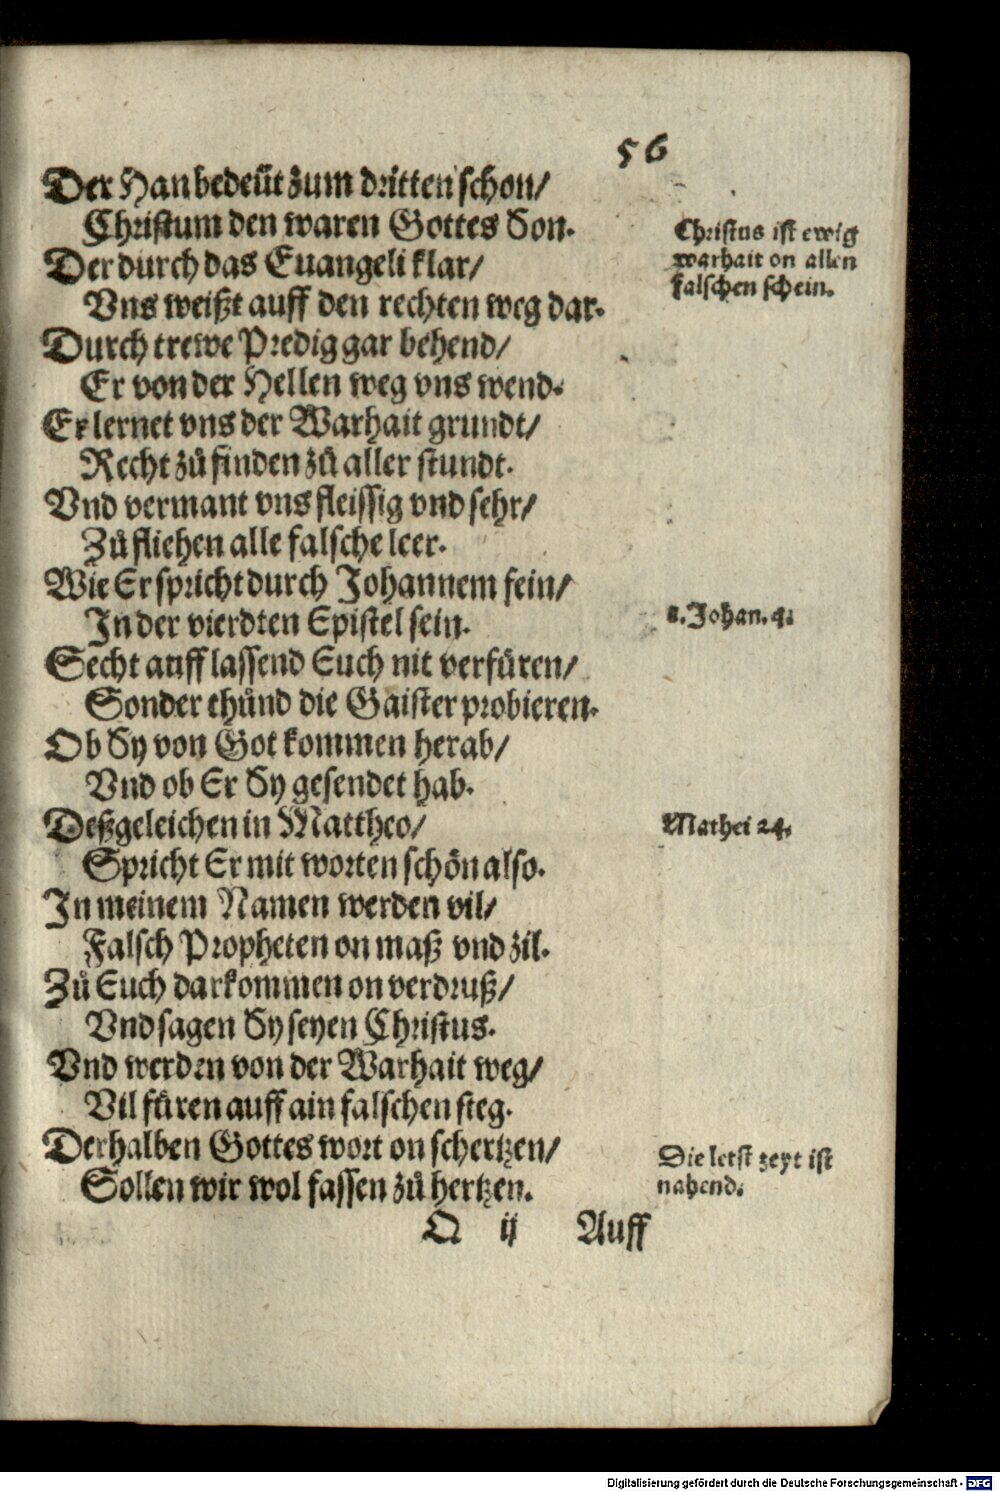 56
Der Han bedeüt zum dritten schon/
Christum den waren Gottes Son.
Christus ist ewig
warhait on allen
falschen schein.
Der durch das Euangeli klar/
Vns weißt auff den rechten weg dar.
Durch trewe Predig gar behend/
Er von der Hellen weg vns wend.
Er lernet vns der Warhait grundt/
Recht zů finden zů aller stundt.
Vnd vermant vns fleissig vnd sehr/
Zů fliehen alle falsche leer.
Wie Er spricht durch Johannem fein/
In der vierdten Epistel sein.
1. Johan. 4.
Secht auff lassend Euch nit verfüren/
Sonder thůnd die Gaister probieren.
Ob Sy von Got kommen herab/
Vnd ob Er Sy gesendet hab.
Deßgeleichen in Mattheo/
Mathei 24.
Spricht Er mit worten schön also.
In meinem Namen werden vil/
Falsch Propheten on maß vnd zil.
Zů Euch darkommen on verdruß/
Vnd sagen Sy seyen Christus.
Vnd werden von der Warhait weg/
Vil füren auff ain falschen steg.
Derhalben Gottes wort on schertzen/
Sollen wir wol fassen zů hertzen.
Die letst zeyt ist
nahend.
O ij Auff
Digitalisierung gefördert durch die Deutsche Forschungsgemeinschaft - DFG